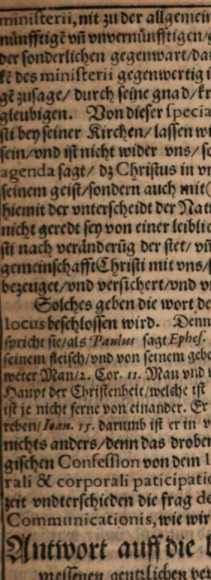 ministerii, nit zu der allgemein
nünfftigē vñ vnvernünfftigen/
der sonderlichen gegenwart/da
kē des ministerii gegenwertig i
gē zusage/ durch seine gnad/kr
gleubigen. Von dieser specia
sti bey seiner Kirchen/ lassen w
sein/vnd ist nicht wider vns/
agenda sagt/ dz Christus in vn
seinem geist/sondern auch mit
hiemit der vnterscheidt der Nat
nicht geredt sey von einer leiblic
sti nach veränderũg der stet/ vñ
gemeinschafft Christi mit vns/
bezeuget/vnd versichert/vnd v
Solches geben die wort de
locus beschlossen wird. Denn
spricht sie/als Paulus sagt Ephes.
seinem fleisch/vnd von seinem gebe
weter Man/2. Cor. 11. Man vnd
Haupt der Christenheit/welche ist
ist je nicht ferne von einander. Er
reben/Ioan. 15. darumb ist er in v
nichts anders/denn das droben
gischen Confession von dem l
rali & corporali paticipatio
zeit vndterschieden die frag de
Communicationis, wie wir
Antwort auff die
messenen gentzlichen ver